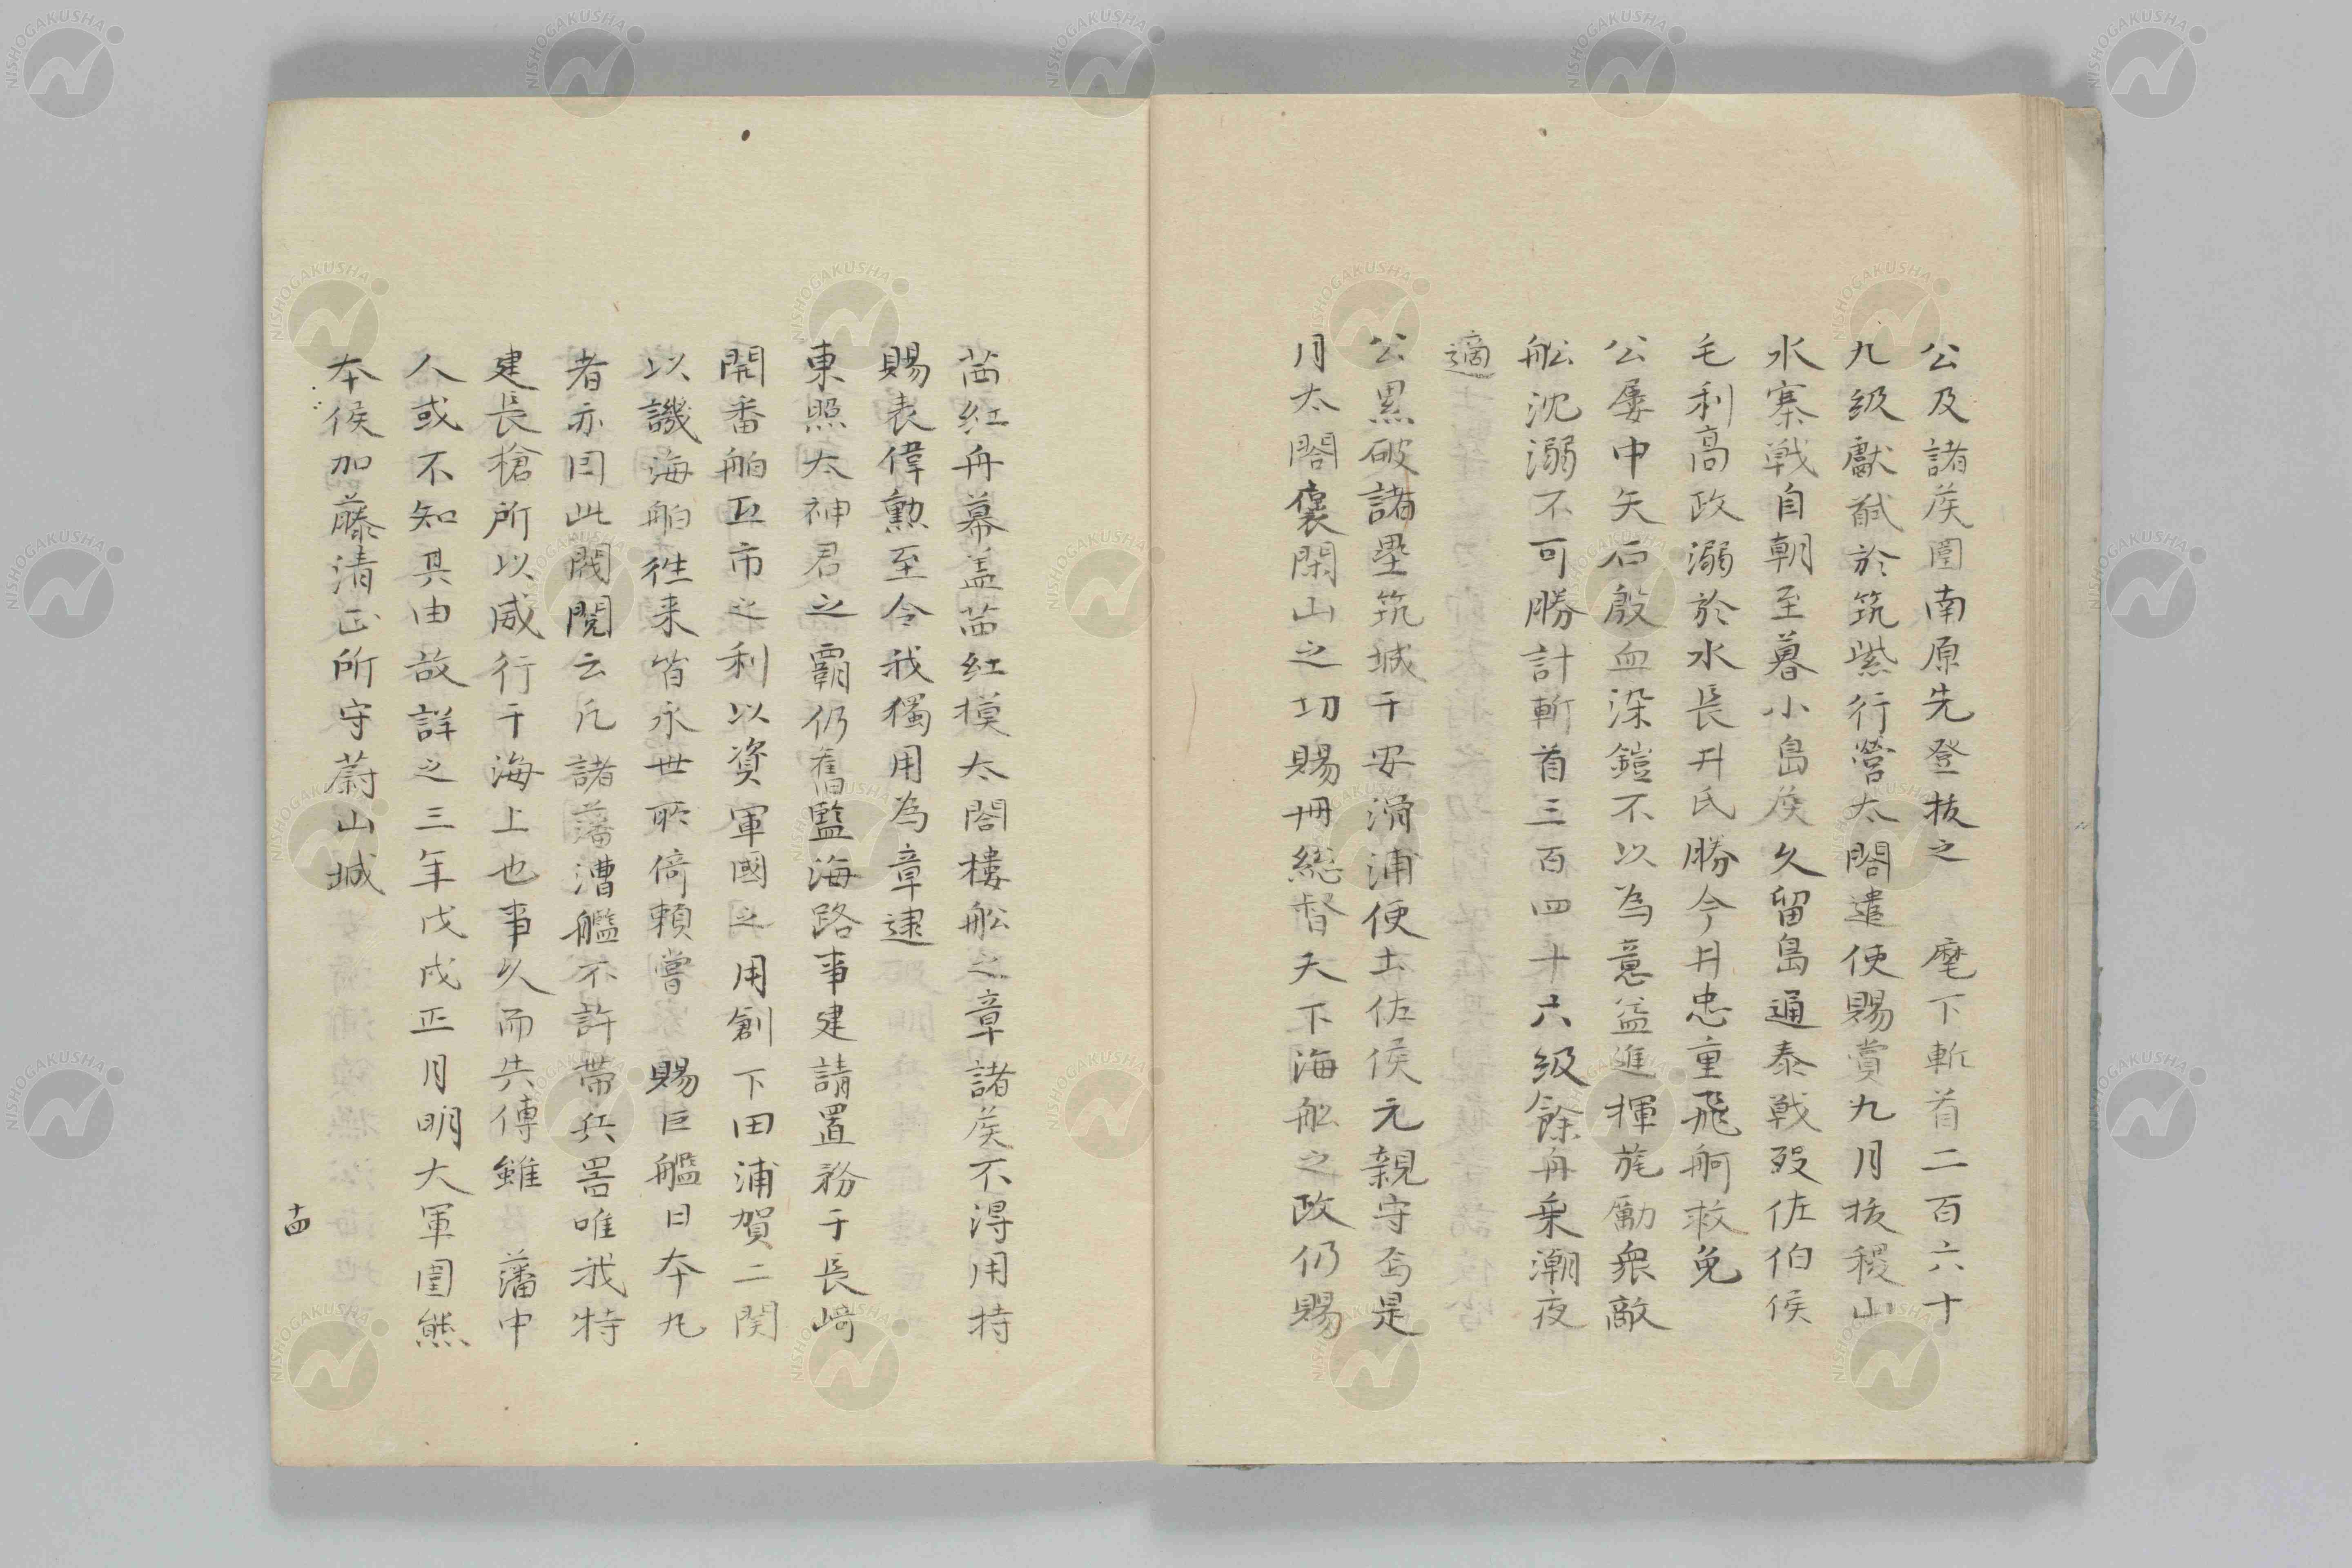 公及諸侯圍南原先登抜之　麾下斬首二百六十
九級獻馘於筑紫行營太閤遣使賜賞九月抜稷山
水寨戦自朝至暮小島侯久留島通泰戦歿佐伯侯
毛利高政溺於水長井氏勝今井忠重飛舸救免
公屡中矢石殷血染鎧不以為意益進揮旄勵衆敵
舩沈溺不可勝計斬首三百四十六級餘舟乗潮夜
適
公累破諸壘筑城于安滑浦使土佐侯元親守焉是
月太閤褒閑山之功賜冊総督天下海舩之政仍賜
茜紅舟幕盖茜紅摸太閤樓舩之章諸侯不得用特
賜表偉勲至今我獨用為章逮
東照太神君之覇仍舊監海路事建請置務于長崎
開番舶互市之利以資軍國之用創下田浦賀二関
以譏海舶徃来皆永世所倚頼嘗　賜巨艦日本丸
者亦因此閥閲云凡諸藩漕艦不許帯兵器唯我特
建長槍所以威行于海上也事久而失傳雖　藩中
人或不知其由故詳之三年戊戌正月明大軍圍熊
本侯加藤清正所守蔚山城
十四
NISHOGAKUSHA